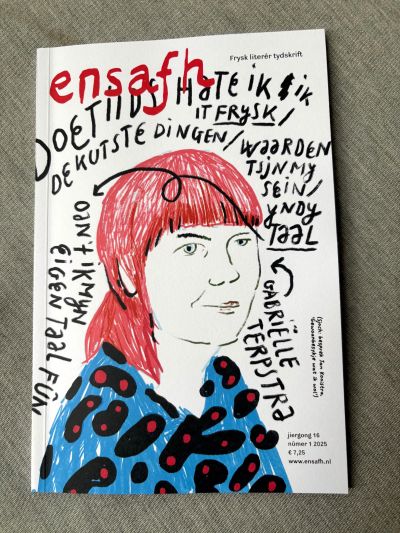 Frysk literêr tydskrift
ensafh
DOETIIDS HATE IK
IT FRYSK/
DE KUTSTE DINGEN/
WAARDEN
TSJN MY
SEIN/
YNDY
TAAL
OAN'T IK MYN
EIGEN TAAL FÛN
GABRIËLLE
TERPSTRA
jiergong 16
nûmer 1 2025
€ 7,25
www.ensafh.nl